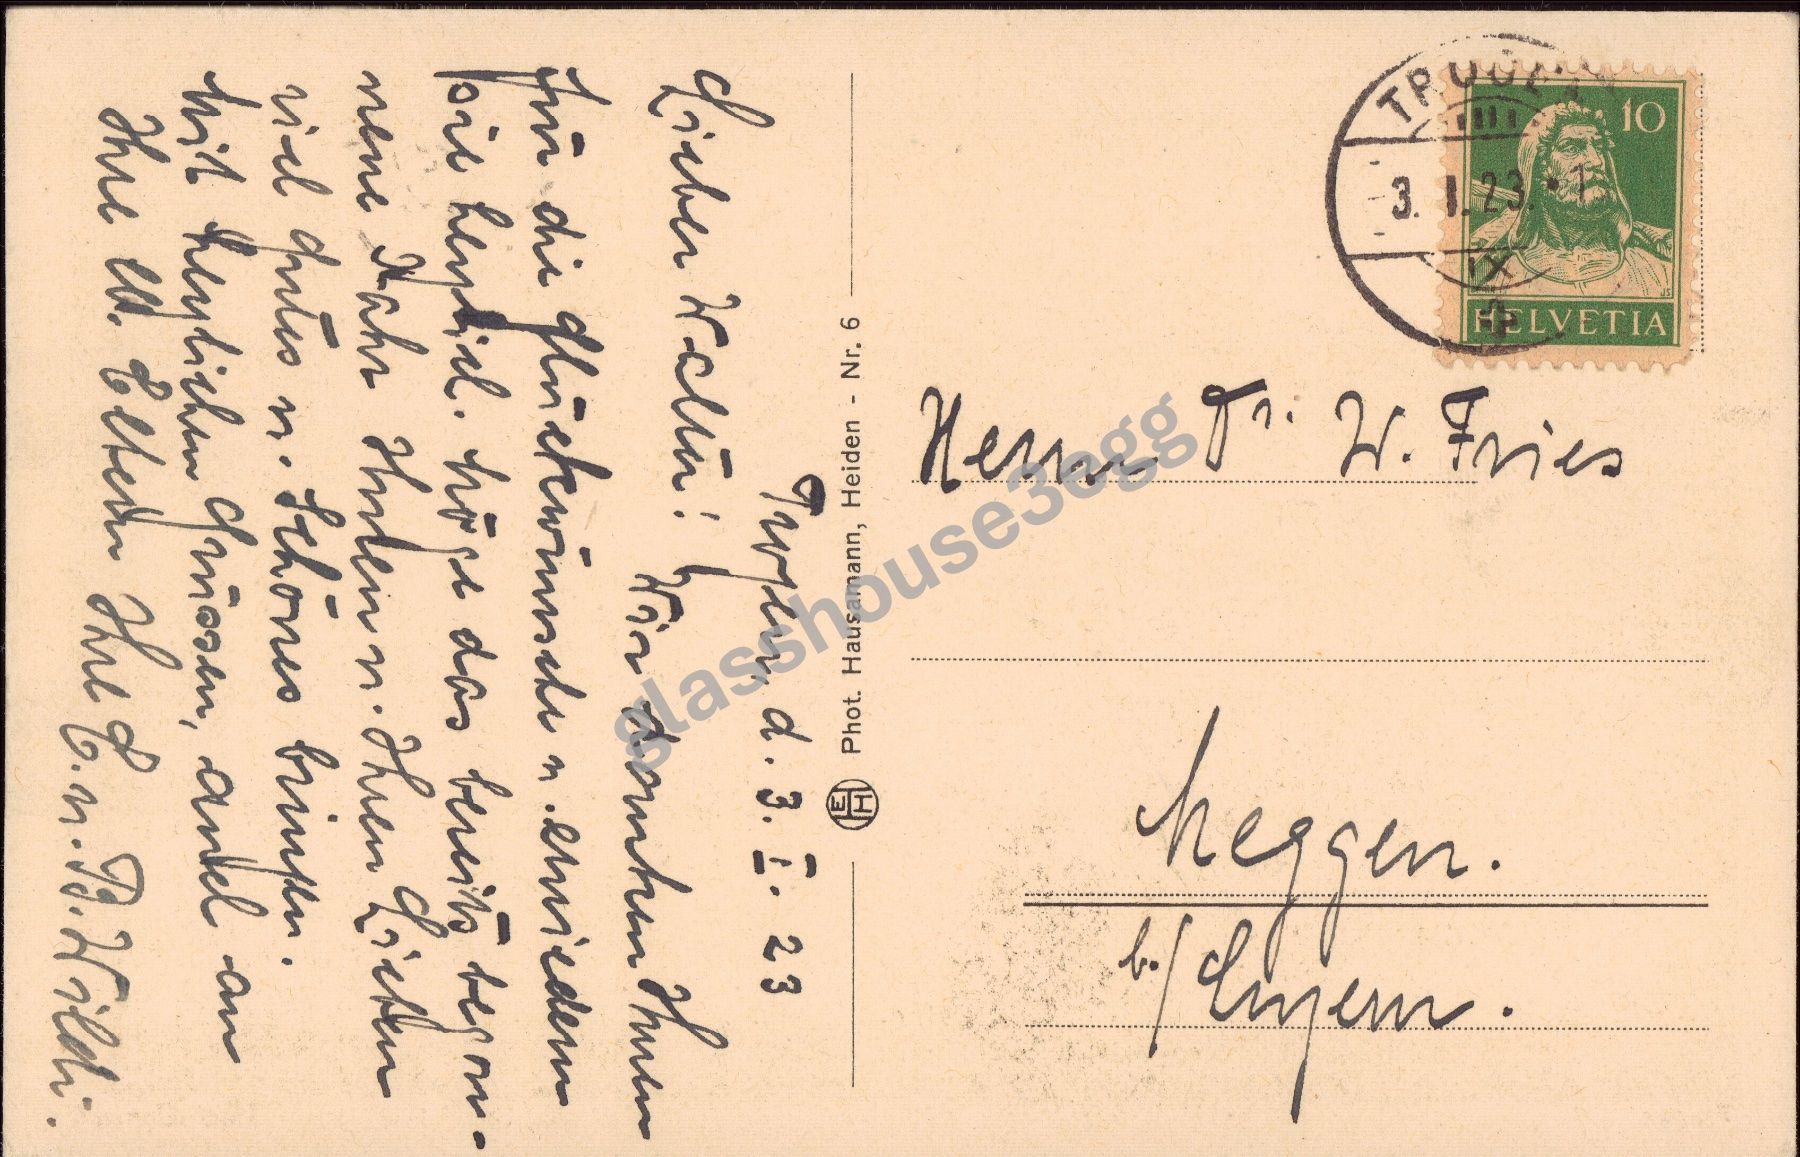 Trogen, d. 3. I. 23
Lieber Walter! Wir danken Ihnen
für die Glückwünsche u. erwiedern
sie herzlich. Möge das bereits begon-
nene Jahr Ihnen u. Ihren Lieben
viel Gutes u. Schönes bringen.
Mit herzlichen Grüssen, auch an
Ihre lb. Eltern Ihre E. u. B. Wildi.
Phot. Hausamann, Heiden - Nr. 6
EH
TROGEN
3. I. 23. 1
IX
10
HELVETIA
JS
Herrn Dr. W. Fries
Meggen.
b./Luzern.
glasshouse3egg